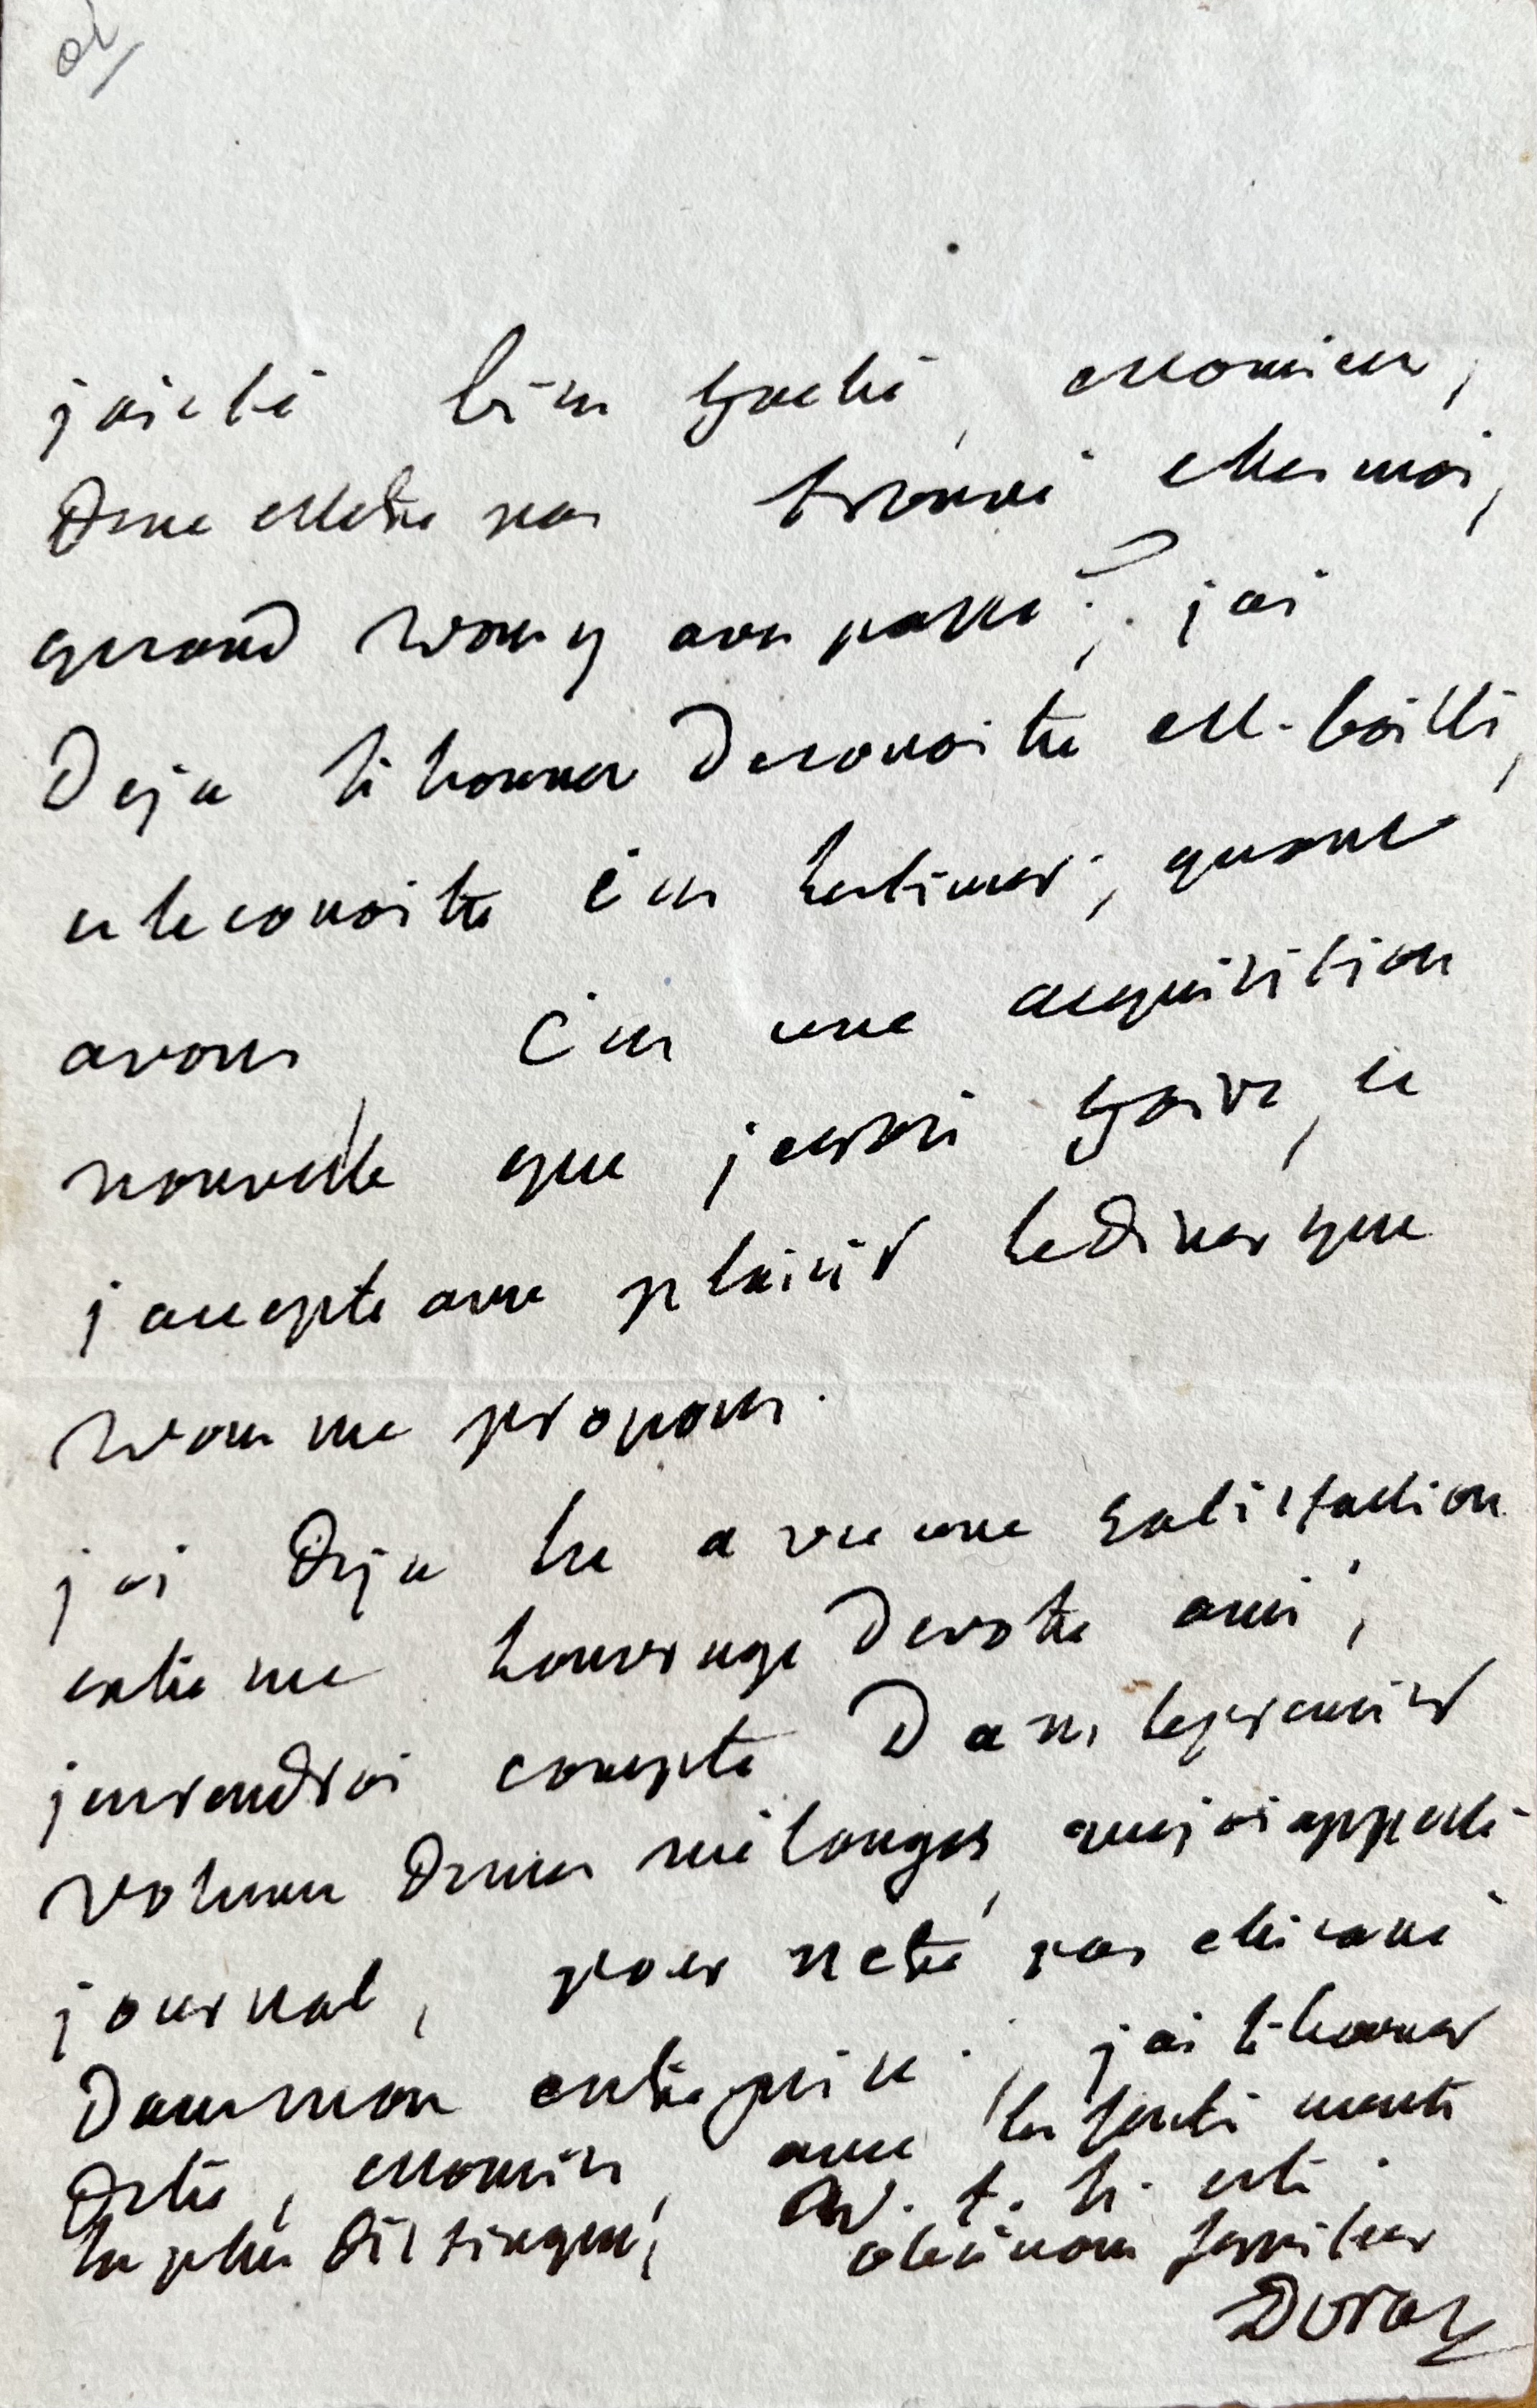 jai eté bien faché, Monsieur,
De ne metre pas trouvé chez moi,
quand vous y avez passé ; jai
Deja lhonneur De conoitre M. bailli,
et le conoitre c'est lestimer ; quant
avous c'est une acquisition
nouvelle que jaurai faire, et
jaccepte avec plaisir le Diner que
vous me proposez.
jai Deja lu avec une satisfaction
extreme louvrage De votre ami ;
jen rendrai compte Dans le premier
volume De mes mélanges, que jai appellé
journal, pour netre pas chicané
Dans mon entreprise ; jai lhonneur
Detre, Monsieur, avec les sentiments
les plus Distingués, V. t. h. et t.
obeissant serviteur
Dorat